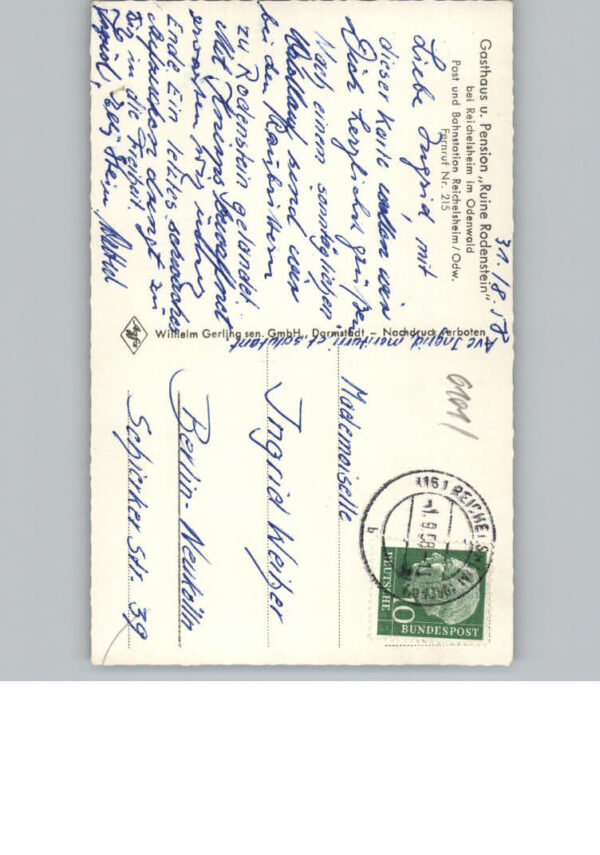 Gasthaus u. Pension „Ruine Rodenstein"
bei Reichelsheim im Odenwald
Post und Bahnstation Reichelsheim/Odw.
Fernruf Nr. 215
31./8.58
Liebe Ingrid, mit
dieser Karte wollen wir
Dich herzlichst grüßen
Nach einem sonntäglichen
sind wir
bei den Raubrittern
zu Rodenstein gelandet.
Mit bewaffnet
erwarten wir
Ende Ein letztes
zu
Dir in die Freiheit.
Ingrid,
Ave Ingrid morituri et salutant
Wilhelm Gerling sen. GmbH., Darmstadt – Nachdruck verboten
Agfa
6101/
Mademoiselle
Ingrid Weißer
Berlin-Neukölln
Schierker Str. 39
(16) REICHELSHEIM
(ODENW)
-1.9.58
b
DEUTSCHE
BUNDESPOST
10